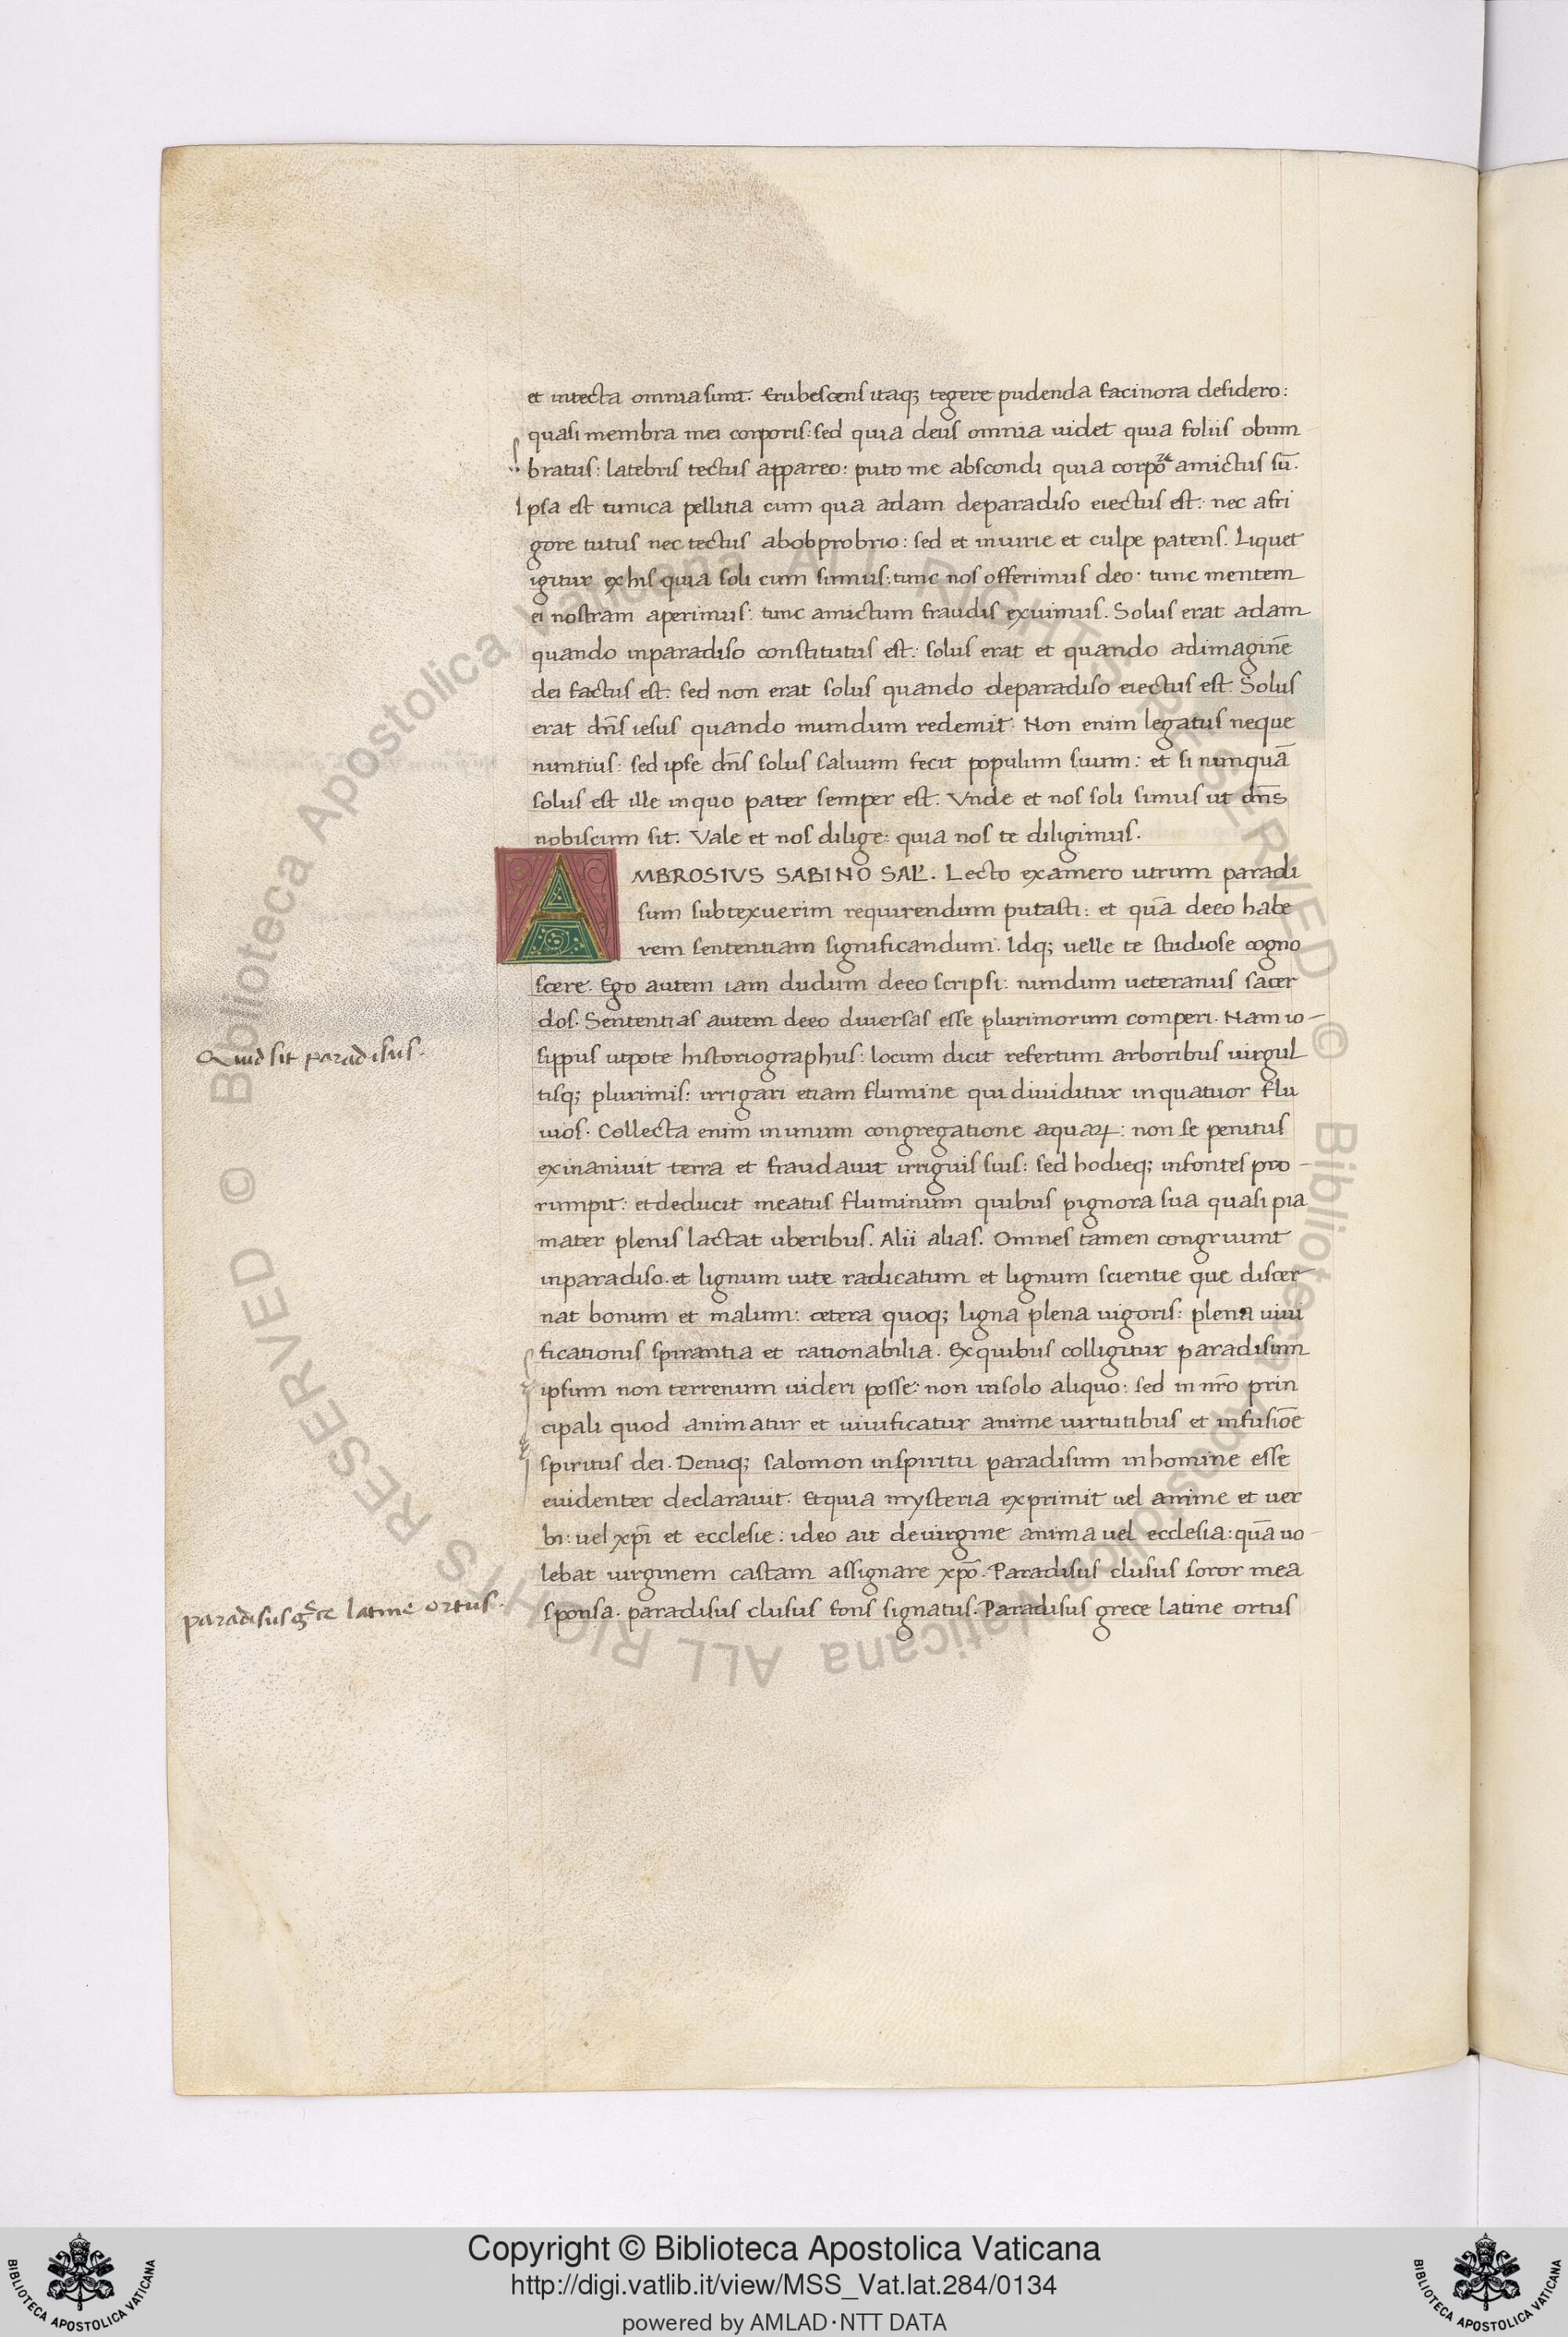 et intecta omnia sunt. Erubescens itaq; tegere pudenda facinora desidero:
quasi membra mei corporis: sed quia deus omnia uidet quia foliis obum
bratus: latebris tectus appareo: puto me abscondi quia corpoꝝ amictus sū.
Ipsa est tunica pellitia cum qua adam deparadiso eiectus est: nec afri
gore tutus nec tectus abobprobrio: sed et iniurie et culpe patens. Liquet
igitur exhis quia soli cum sumus: tunc nos offerimus deo: tunc mentem
ei nostram aperimus: tunc amictum fraudis exuimus. Solus erat adam
quando inparadiso constitutus est: solus erat et quando adimaginē
dei factus est. sed non erat solus quando deparadiso eiectus est. Solus
erat dn̄s iesus quando mundum redemit. Non enim legatus neque
nuntius: sed ipse dn̄s solus saluum fecit populum suum: et si nunquā
solus est ille inquo pater semper est. Vnde et nos soli simus ut dn̄s
nobiscum sit. Vale et nos dilige: quia nos te diligimus.
AMBROSIVS SABINO SAL̄. Lecto examero utrum paradi
sum subtexuerim requirendum putasti: et quā deeo habe
rem sententiam significandum. Idq; uelle te studiose cogno
scere. Ego autem iam dudum deeo scripsi: nundum ueteranus sacer
dos. Sententias autem deeo diuersas esse plurimorum comperi. Nam io-
sippus utpote historiographus: locum dicit refertum arboribus uirgul
Quid sit paradisus.
tisq; plurimis: irrigari etiam flumine qui diuiditur inquatuor flu
uios. Collecta enim inunum congregatione aquaꝝ: non se penitus
exinaniuit terra et fraudauit irriguis suis: sed hodieq; infontes pro-
rumpit: etdeducit meatus fluminum quibus pignora sua quasi pia
mater plenis lactat uberibus. Alii alias. Omnes tamen congruunt
inparadiso. et lignum uite radicatum et lignum scientie que discer-
nat bonum et malum: cetera quoq; ligna plena uigoris: plena uiui
ficationis spirantia et rationabilia. Exquibus colligitur paradisum
ipsum non terrenum uideri posse: non insolo aliquo: sed in nr̄o prin
cipali quod animatur et uiuificatur anime uirtutibus et infusiōe
spiritus dei. Deniq; salomon inspiritu paradisum inhomine esse
euidenter declarauit. Etquia mysteria exprimit uel anime et uer
bi: uel xp̄i et ecclesie: ideo ait deuirgine anima uel ecclesia: quā uo-
lebat uirginem castam assignare xp̄o. Paradisus clusus soror mea
sponsa. paradisus clusus fons signatus. Paradisus grece latine ortus
paradisus g̅ce latine ortus.
Copyright © Biblioteca Apostolica Vaticana
http://digi.vatlib.it/view/MSS_Vat.lat.284/0134
powered by AMLAD·NTT DATA
BIBLIOTECA APOSTOLICA VATICANA
BIBLIOTECA APOSTOLICA VATICANA
© Biblioteca Apostolica Vaticana ALL RIGHTS RESERVED
© Biblioteca Apostolica Vaticana ALL RIGHTS RESERVED